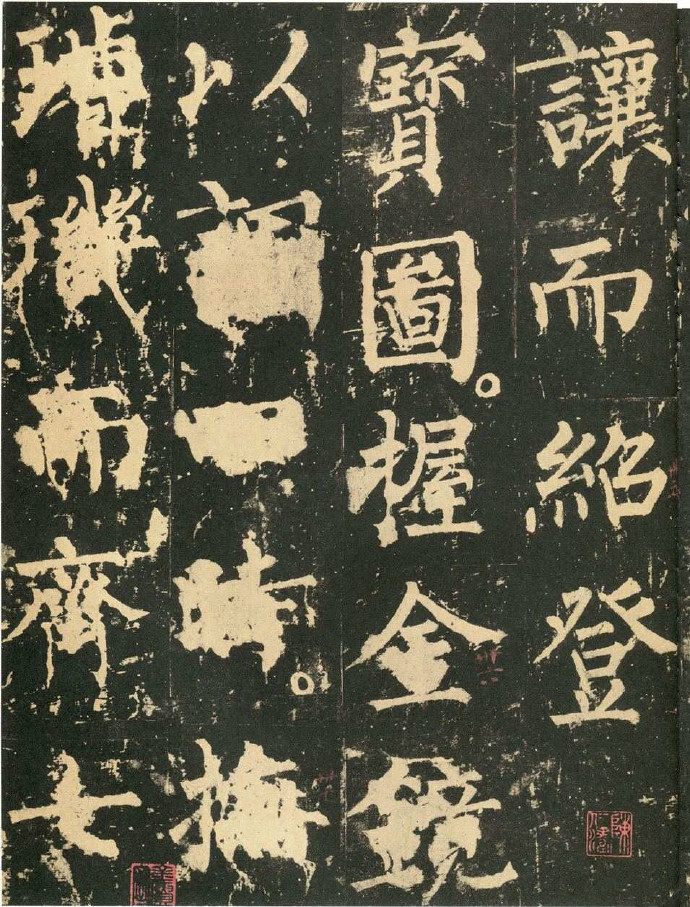 讓而紹登
寶圖。握金鏡
以一時。撫
璣而齊七